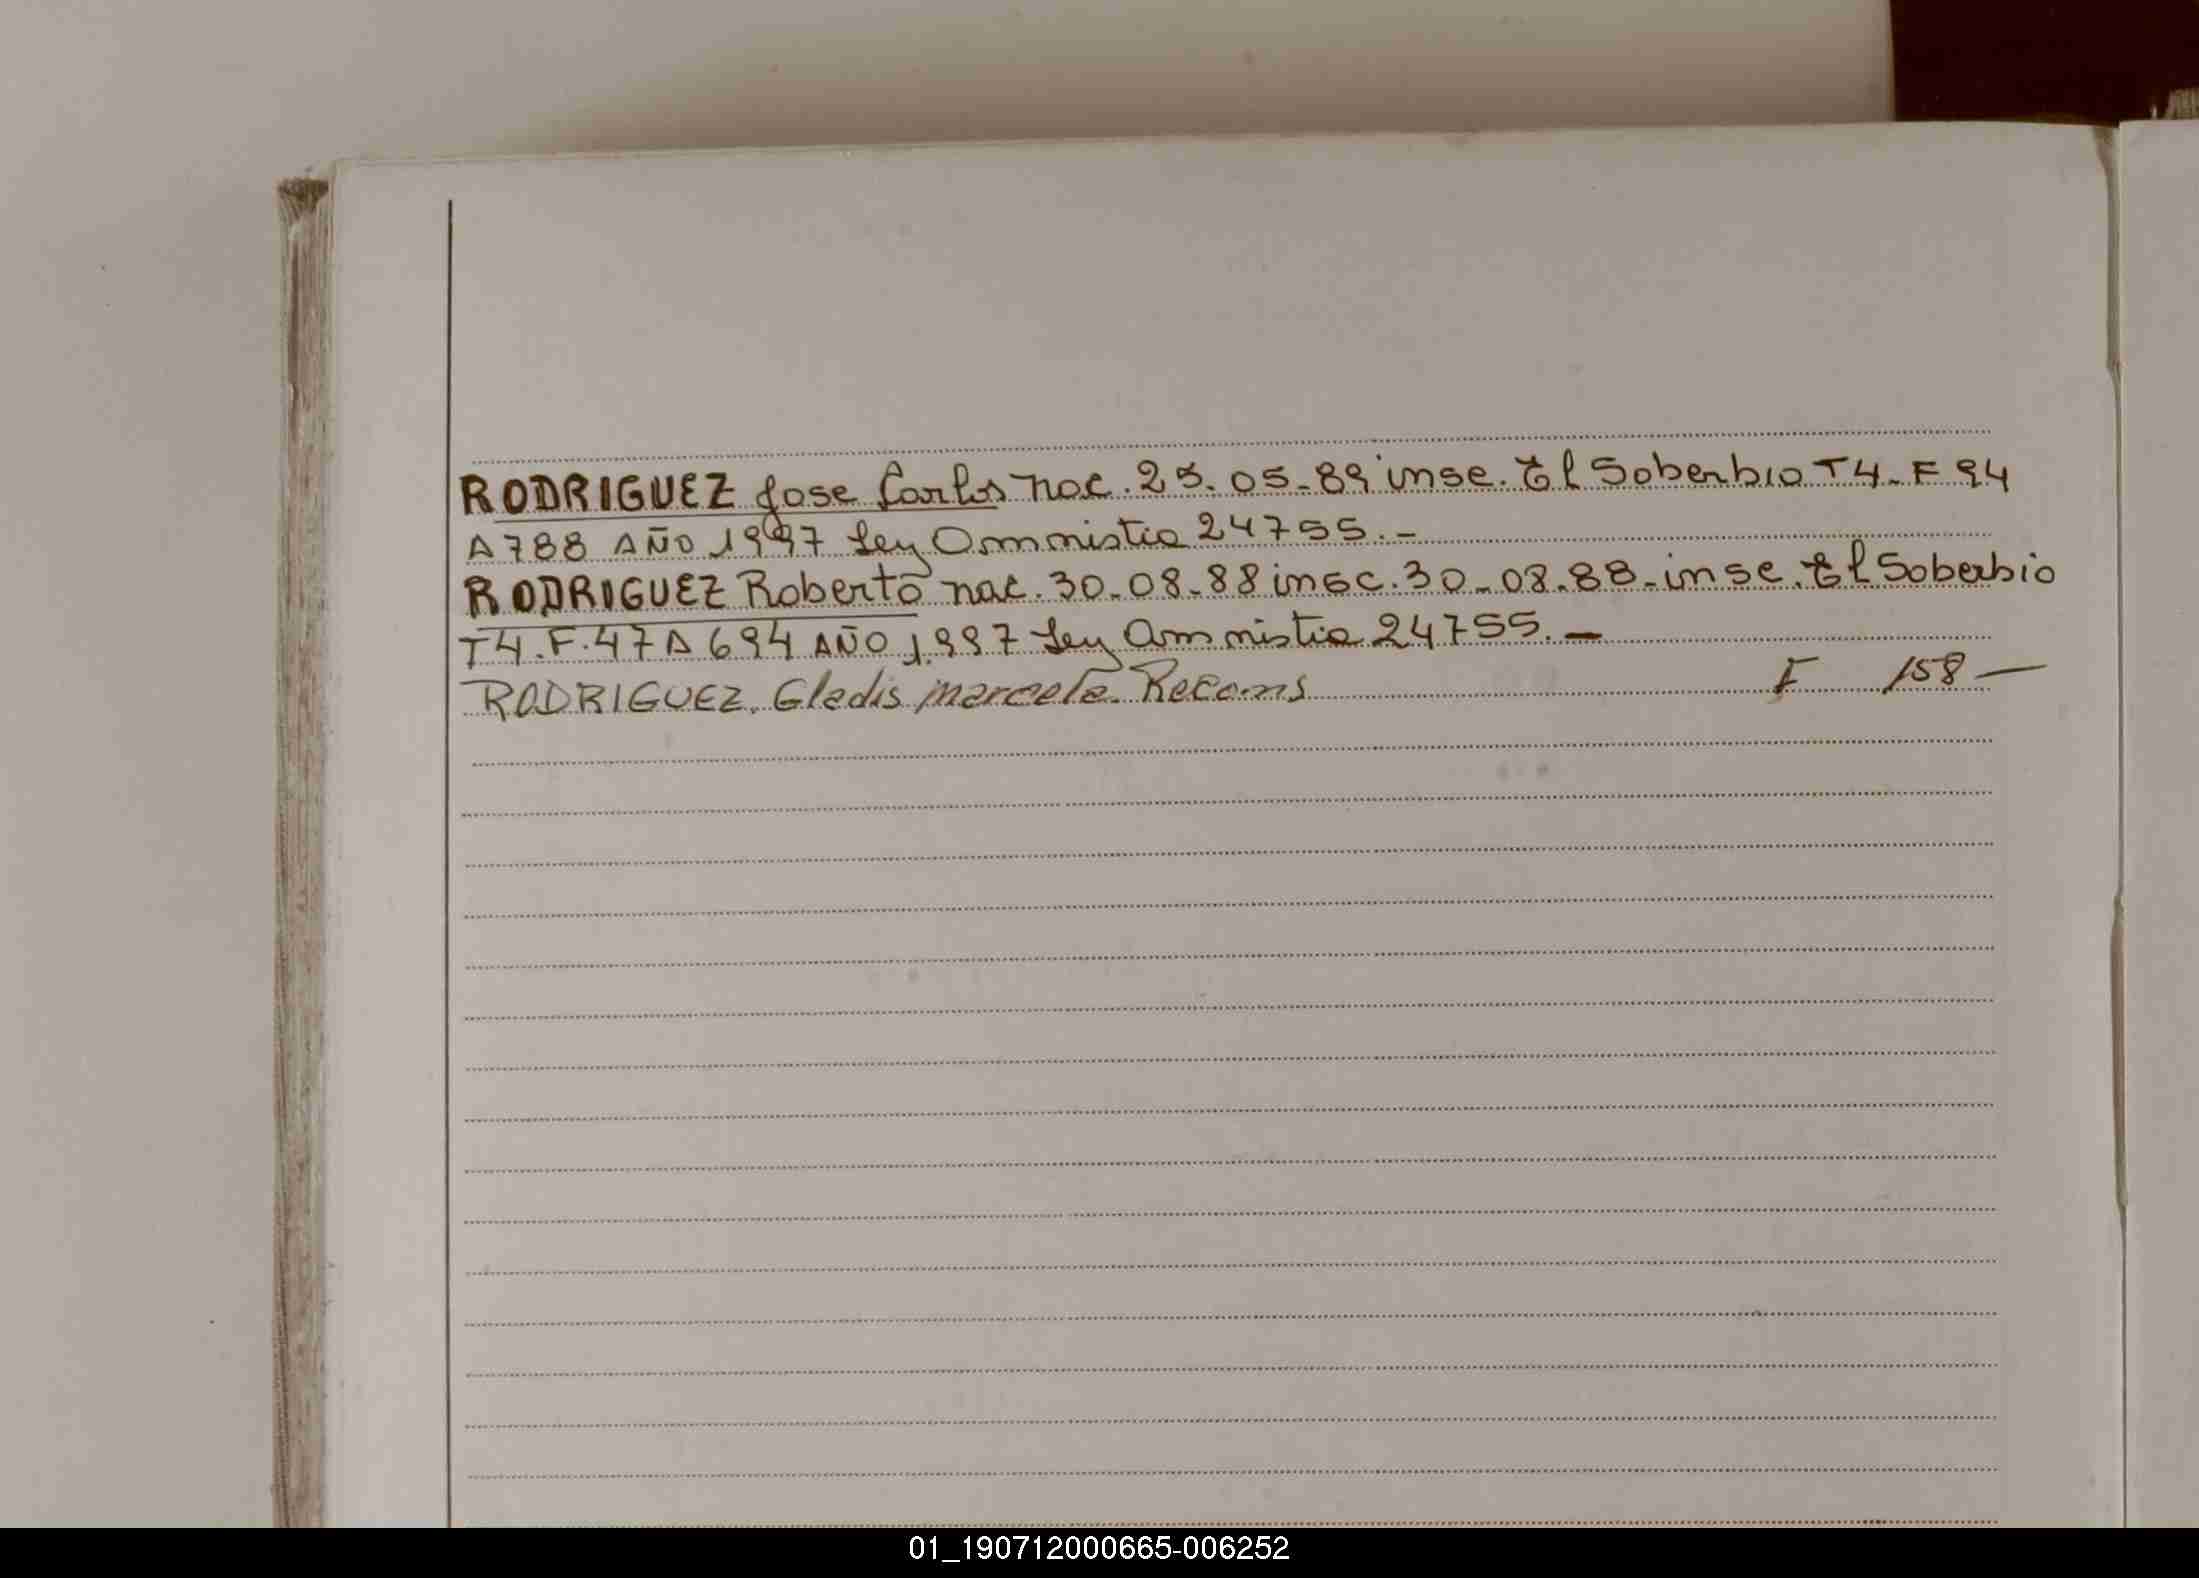 RODRIGUEZ Jose Carlos nac. 25.05-89 insc. El Soberbio T4-F 94
A 788 AÑO 1997 Ley Ommistia 24755.-
RODRIGUEZ Roberto nac. 30-08-88 insc. 30-08.88-insc. El Soberbio
T4.F.47A 694 AÑO 1.997 Ley Amnistia 24755.-
RODRIGUEZ. Gladis marcela. Recons F 158 —
01_190712000665-006252